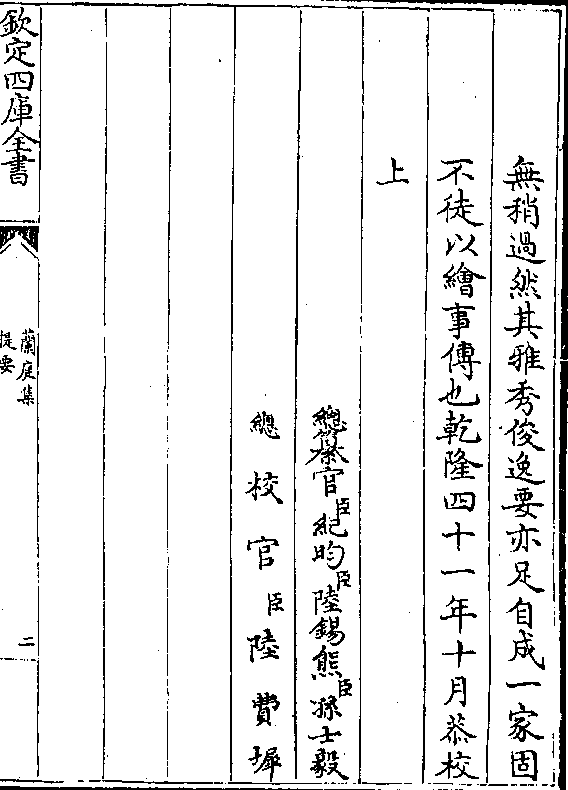 無稍過然其雅秀俊逸要亦足自成一家固
不徒以繪事傳也乾隆四十一年十月恭校
上
總纂官臣紀昀臣陸錫熊臣孫士毅
總校官臣陸費墀
欽定四庫全書
蘭庭集
提要
二